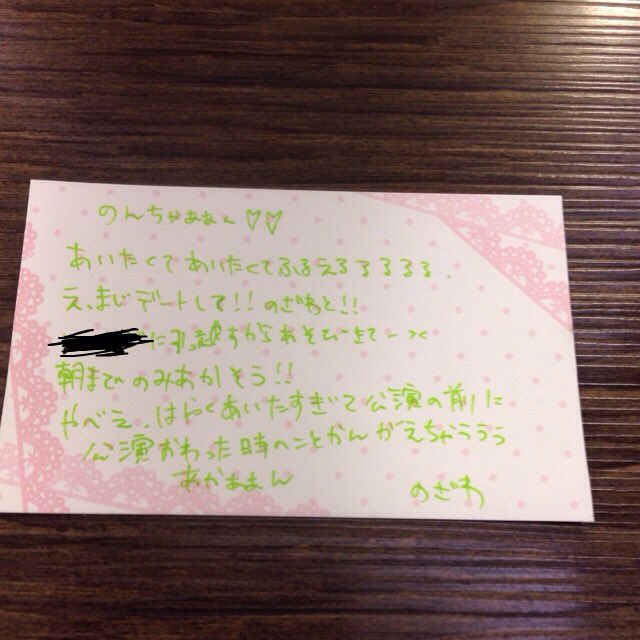 のんちゃあぁん♡♡
あいたくてあいたくてふるえるるるるる。
えまじデートして!!のざわと!!
に引越すからあそびきてーxx
朝までのみあかそう!!
やべえ、はやくあいたすぎて公演の前に
公演おわった時のことかんがえちゃううう
あかぁぁん
のざわ